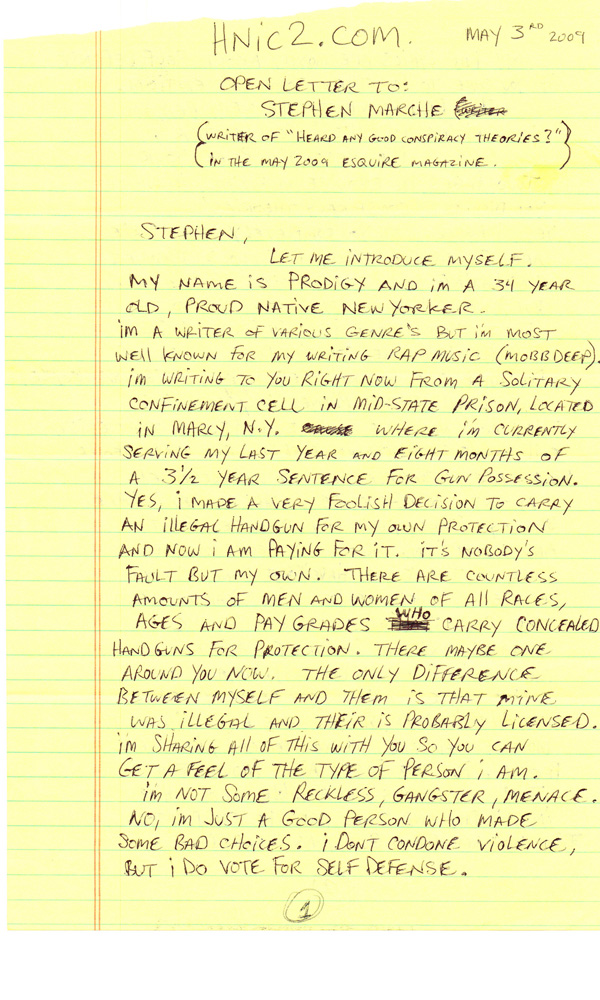 HNiC2.COM. MAY 3RD 2009
OPEN LETTER TO:
STEPHEN MARCHE
(WRITER OF "HEARD ANY GOOD CONSPIRACY THEORIES?")
IN THE MAY 2009 ESQUIRE MAGAZINE.
STEPHEN,
LET ME INTRODUCE MYSELF.
MY NAME IS PRODIGY AND iM A 34 YEAR
OLD, PROUD NATIVE NEW YORKER.
iM A WRITER OF VARIOUS GENRE'S BUT i'M MOST
WELL KNOWN FOR MY WRITING RAP MUSIC (MOBB DEEP).
i'M WRITING TO YOU RIGHT NOW FROM A SOLITARY
CONFINEMENT CELL IN MID-STATE PRISON, LOCATED
IN MARCY, N.Y. WHERE i'M CURRENTLY
SERVING MY LAST YEAR AND EIGHT MONTHS OF
A 3 1/2 YEAR SENTENCE FOR GUN POSSESSION.
YES, i MADE A VERY FOOLISH DECISION TO CARRY
AN ILLEGAL HANDGUN FOR MY OWN PROTECTION
AND NOW i AM PAYING FOR IT. IT'S NOBODY'S
FAULT BUT MY OWN. THERE ARE COUNTLESS
AMOUNTS OF MEN AND WOMEN OF ALL RACES,
AGES AND PAY GRADES WHO CARRY CONCEALED
HANDGUNS FOR PROTECTION. THERE MAYBE ONE
AROUND YOU NOW. THE ONLY DIFFERENCE
BETWEEN MYSELF AND THEM IS THAT MINE
WAS ILLEGAL AND THEIR IS PROBABLY LICENSED.
i'M SHARING ALL OF THIS WITH YOU SO YOU CAN
GET A FEEL OF THE TYPE OF PERSON i AM.
i'M NOT SOME RECKLESS, GANGSTER, MENACE.
NO, i'M JUST A GOOD PERSON WHO MADE
SOME BAD CHOICES. i DONT CONDONE VIOLENCE,
BUT i DO VOTE FOR SELF DEFENSE.
1